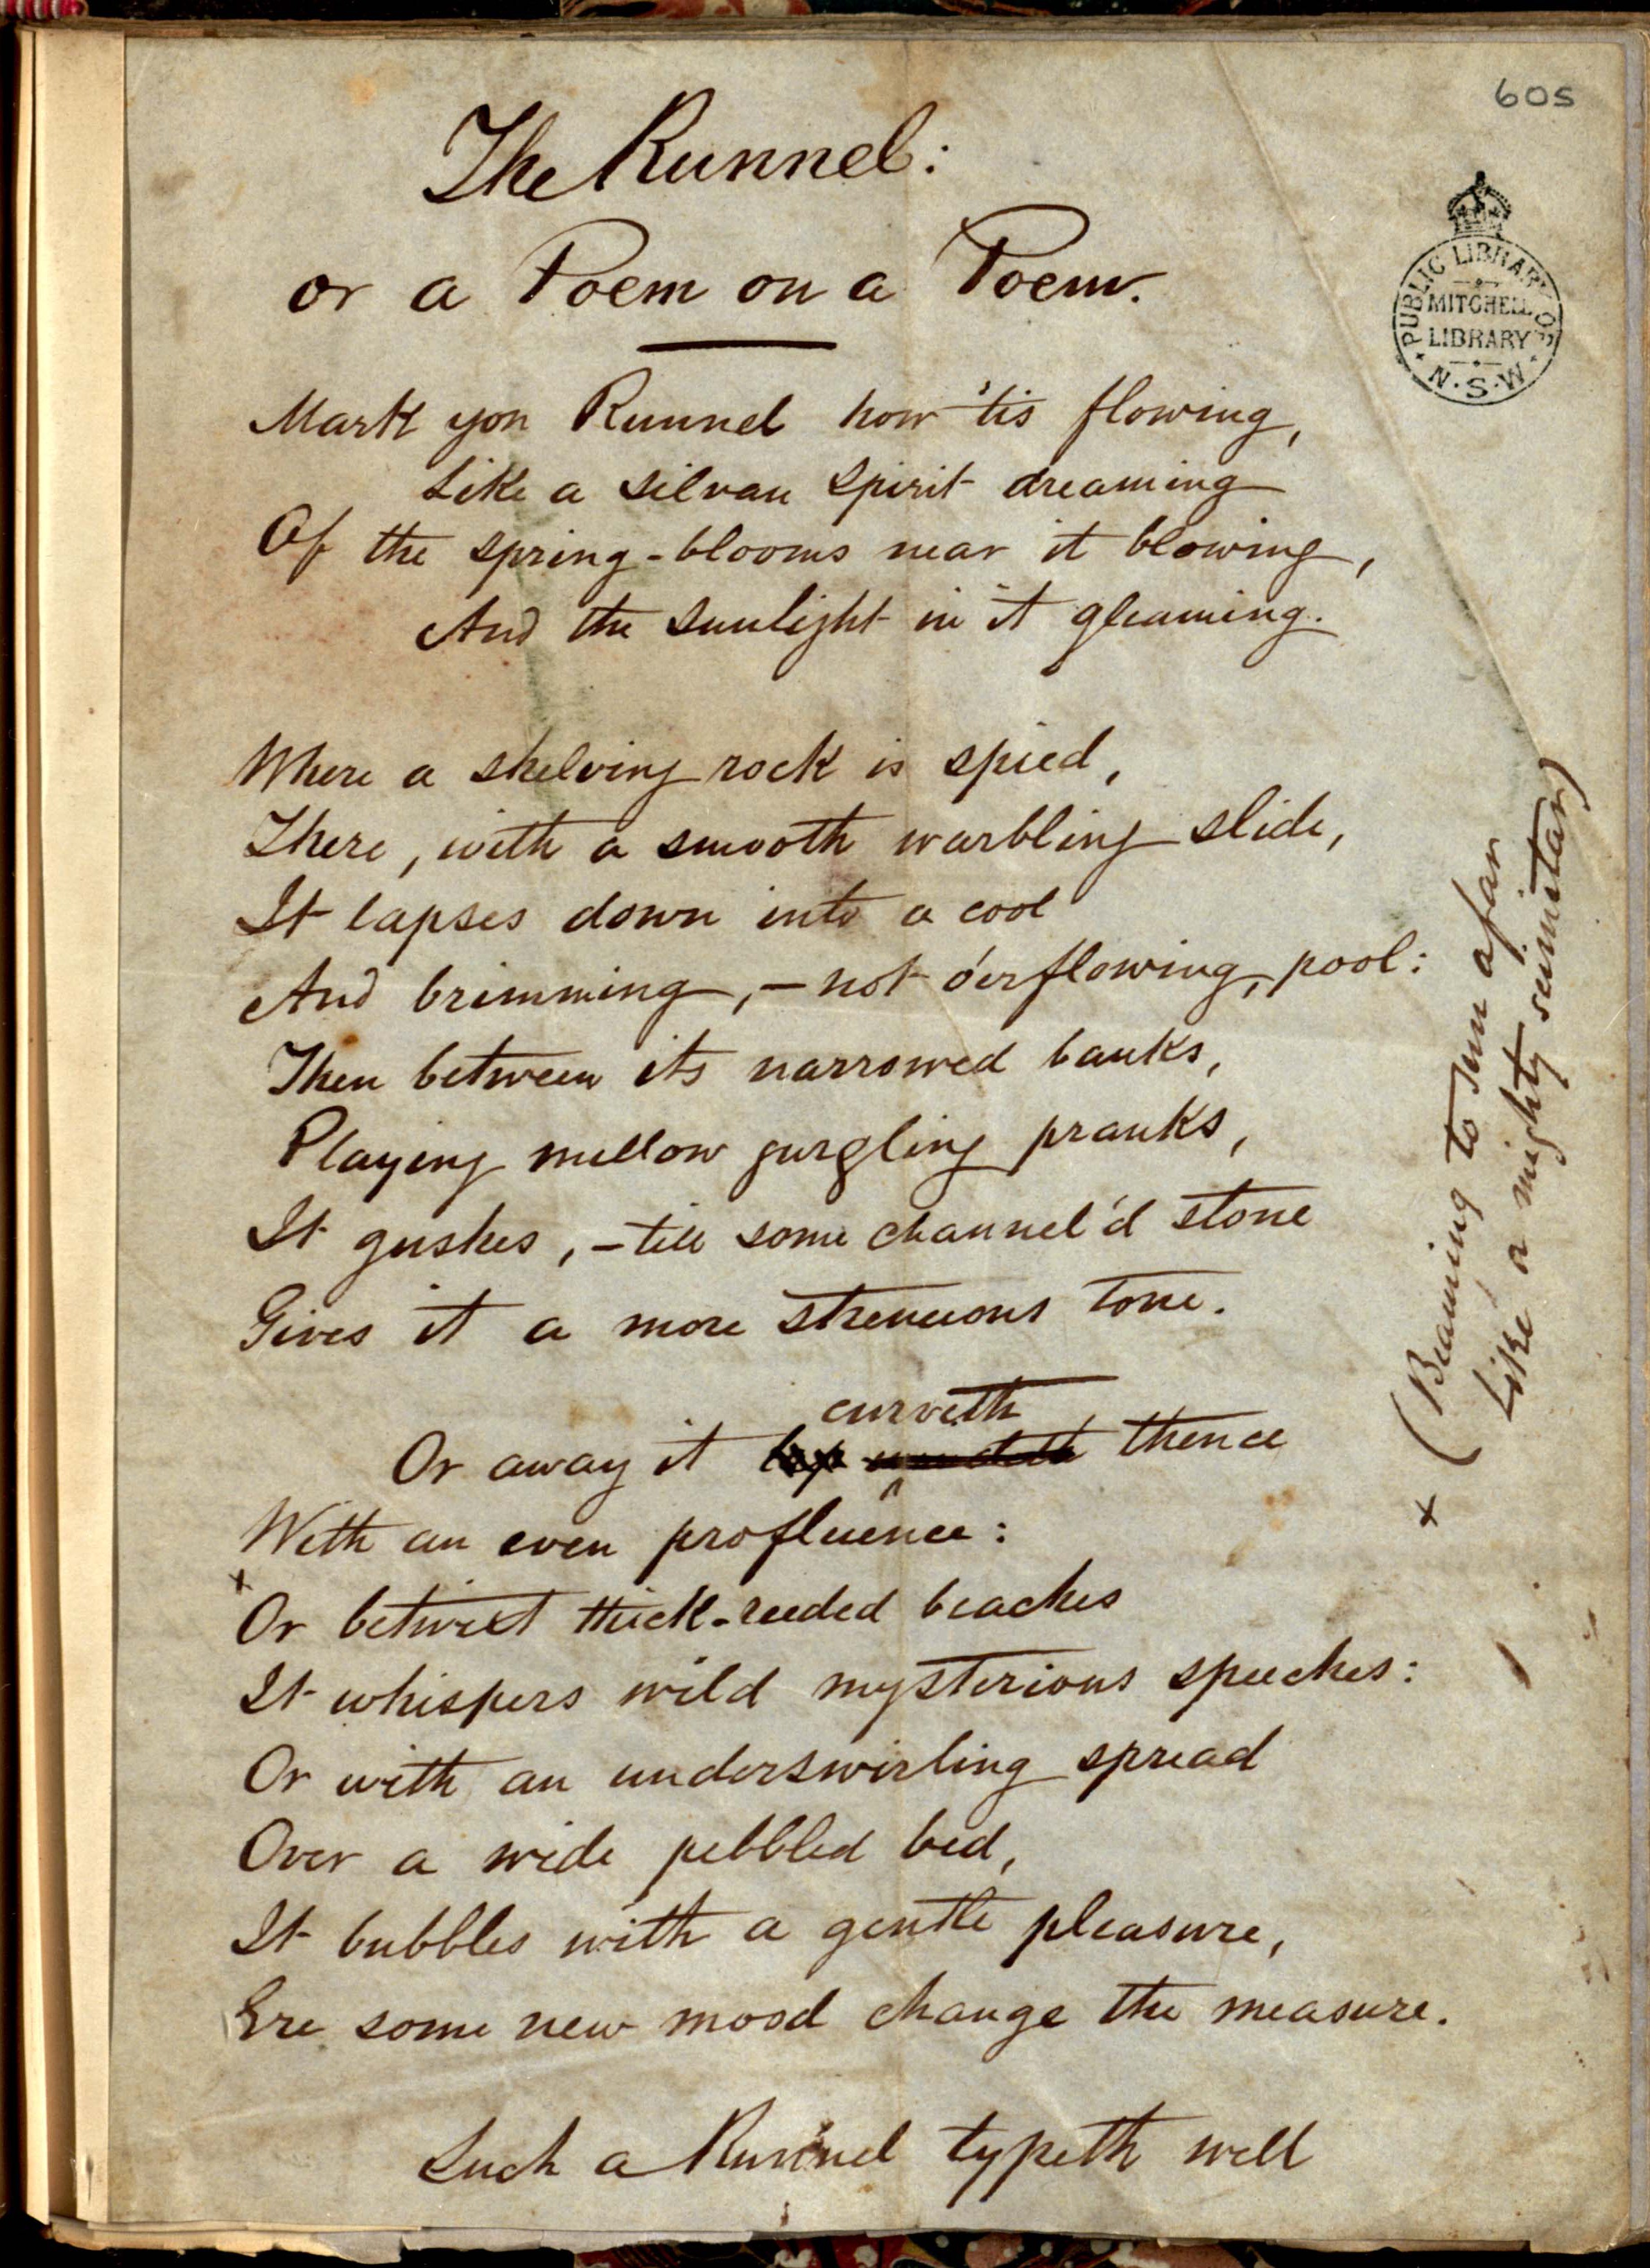 605
The Runnel:
or a Poem on a Poem.
PUBLIC LIBRARY OF
MITCHELL
LIBRARY
N.S.W.
Mark yon Runnel how 'tis flowing,
Like a silvan spirit dreaming
Of the spring-blooms near it blowing,
And the sunlight in it gleaming.
Where a shelving rock is spied,
There, with a smooth warbling slide,
It lapses down into a cool
And brimming, – not o'erflowing, pool:
Then between its narrowed banks,
Playing mellow gurgling pranks,
It gushes, – till some channel'd stone
Gives it a more strenuous tone.
curveth
Or away it thence
With an even profluence:
x Or betwixt thick-reeded beaches
It whispers wild mysterious speeches:
Or with an underswirling spread
Over a wide pebbled bed,
It bubbles with a gentle pleasure,
Ere some new mood change the measure.
Such a Runnel typeth well
x (Beaming to Sun afar
Like a mighty scimitar)